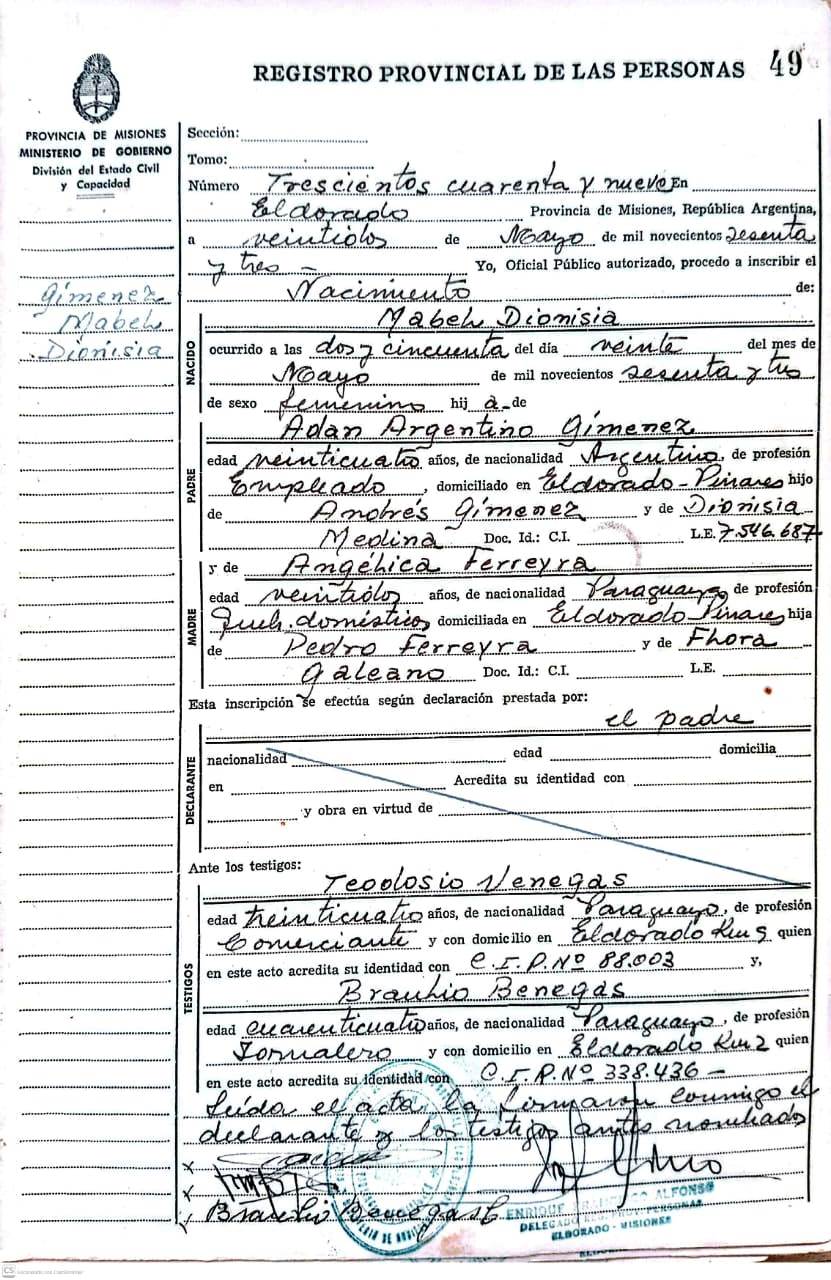 REGISTRO PROVINCIAL DE LAS PERSONAS 49
PROVINCIA DE MISIONES
MINISTERIO DE GOBIERNO
División del Estado Civil
y Capacidad
Gímenez
Mabel
Dionisia
Sección:
Tomo:
Número Trescientos cuarenta y nueve En
Eldorado Provincia de Misiones, República Argentina,
a veintidos de Mayo de mil novecientos sesenta
y tres Yo, Oficial Público autorizado, procedo a inscribir el
Nacimiento de:
NACIDO
Mabel Dionisia
ocurrido a las dos y cincuenta del día veinte del mes de
Mayo de mil novecientos sesenta y tres
de sexo femenino hij a de
PADRE
Adan Argentino Gímenez
edad veinticuatro años, de nacionalidad Argentino, de profesión
Empleado, domiciliado en Eldorado-Pinares hijo
de Andrés Gímenez y de Dionisia
Medina Doc. Id.: C.I. L.E. 7.546.687
MADRE
y de Angélica Ferreyra
edad veintidos años, de nacionalidad Paraguaya, de profesión
Queh. domésticos domiciliada en Eldorado Pinares hija
de Pedro Ferreyra y de Flora
Galeano Doc. Id.: C.I. L.E.
Esta inscripción se efectúa según declaración prestada por:
el padre
DECLARANTE
nacionalidad edad domicilia
en Acredita su identidad con
y obra en virtud de
Ante los testigos:
TESTIGOS
Teodosio Venegas
edad treinticuatro años, de nacionalidad Paraguayo, de profesión
Comerciante y con domicilio en Eldorado Km 9 quien
en este acto acredita su identidad con C.I.P.Nº 88.003 y,
Braulio Benegas
edad cuarenticuatro años, de nacionalidad Paraguayo, de profesión
Jornalero y con domicilio en Eldorado Km 2 quien
en este acto acredita su identidad con C.I.P.Nº 338.436 -
Leída el acta, la firmaron conmigo el
declarante y los testigos antes nombrados
x
x
x Braulio Benegas
ENRIQUE ALFONSO
DELEGADO PERSONAS
ELDORADO - MISIONES
CS